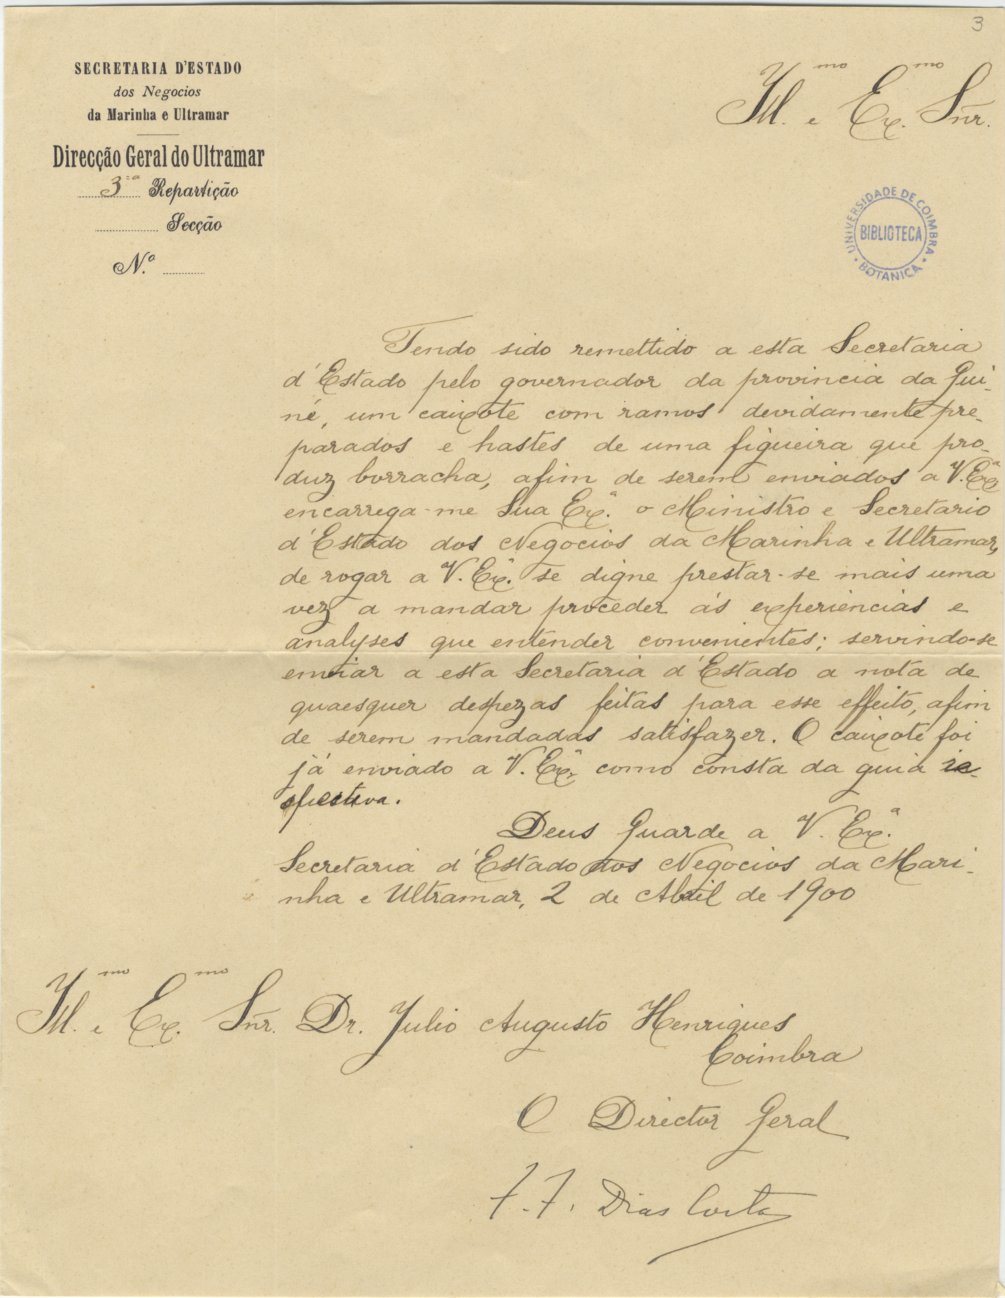 3
SECRETARIA D'ESTADO
dos Negocios
da Marinha e Ultramar
Direcção Geral do Ultramar
3ª Repartição
Secção
N.º
Ill.mo e Ex.mo Sñr.
UNIVERSIDADE DE COIMBRA
BIBLIOTECA
BOTANICA
Tendo sido remettido a esta Secretaria
d'Estado pelo governador da provincia da Gui-
né, um caixote com ramos devidamente pre-
parados e hastes de uma figueira que pro-
duz borracha, afim de serem enviados a V. Exª
encarrega-me Sua Exª. o Ministro e Secretario
d'Estado dos Negocios da Marinha e Ultramar,
de rogar a V. Exª. se digne prestar-se mais uma
vez a mandar proceder ás experiencias e
analyses que entender convenientes; servindo-se
enviar a esta Secretaria d'Estado a nota de
quaesquer despezas feitas para esse effeito, afim
de serem mandadas satisfazer. O caixote foi
já enviado a V. Exª. como consta da guia re-
spectiva.
Deus Guarde a V. Exª.
Secretaria d'Estado dos Negocios da Mari-
nha e Ultramar, 2 de Abril de 1900
Ill.mo e Ex.mo Sñr. Dr. Julio Augusto Henriques
Coimbra
O Director Geral
F. F. Dias Costa